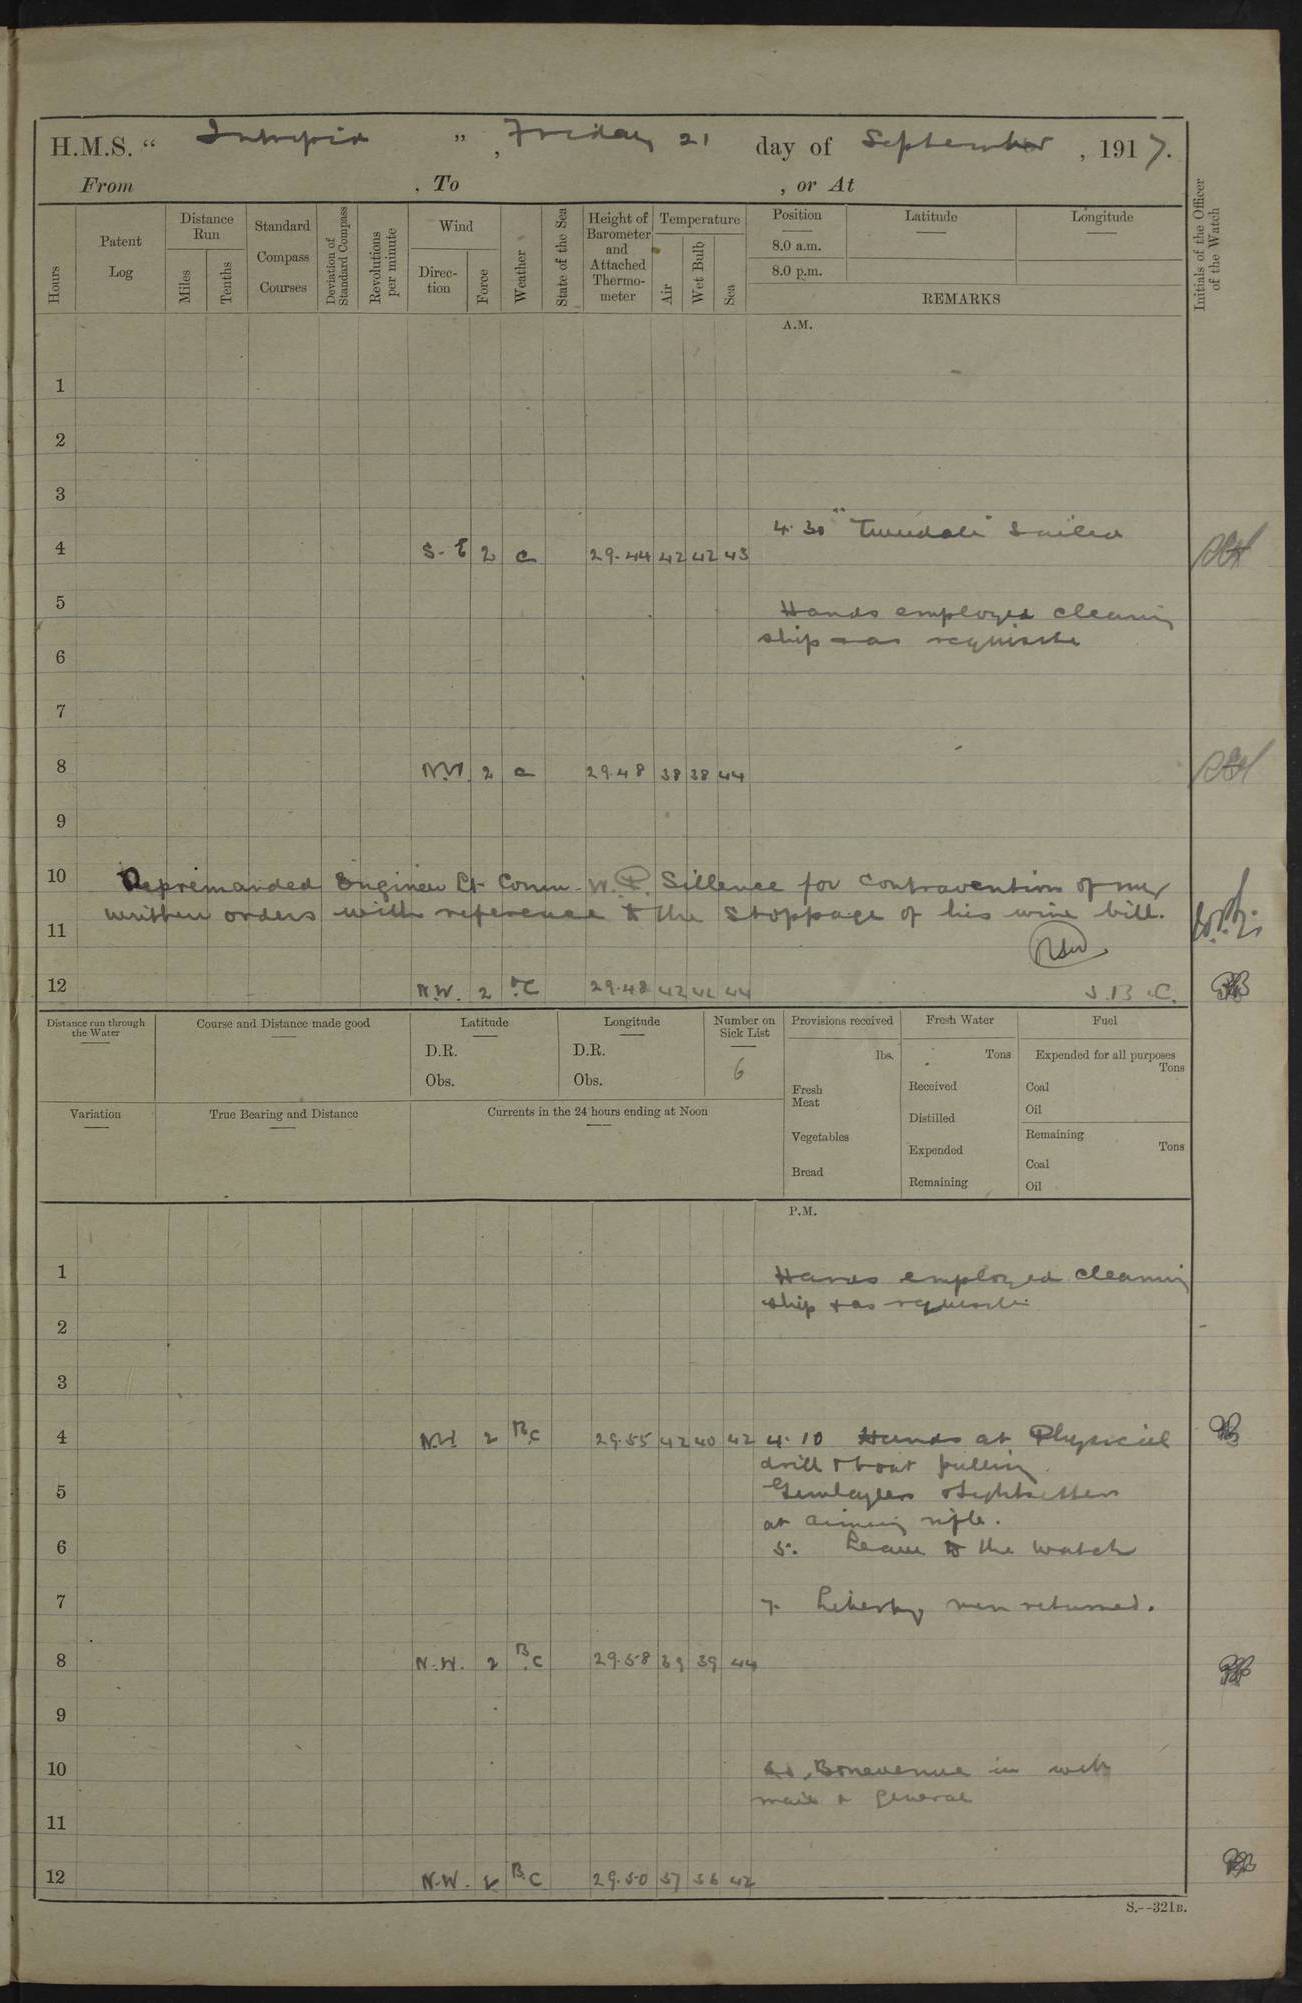 H.M.S. " Intrepid ", Friday 21 day of September, 1917.
From , To , or At
Hours
Patent Log
Distance Run
Miles
Tenths
Standard Compass Courses
Deviation of Standard Compass
Revolutions per minute
Wind
Direc-tion
Force
Weather
State of the Sea
Height of Barometer and Attached Thermo-meter
Temperature
Air
Wet Bulb
Sea
Position
8.0 a.m.
8.0 p.m.
Latitude
Longitude
REMARKS
Initials of the Officer of the Watch
A.M.
1
2
3
4.30 "Tweedale" Sailed
4 S.E 2 c 29.44 42 42 43
5 Hands employed cleaning
ship & as requisite
6
7
8 N.W. 2 c 29.48 38 38 44
9
10 Reprimanded Engineer Lt Comm. W.P. Sillence for contravention of my
written orders with reference to the stoppage of his wine bill.
11
12 N.W. 2 C 29.48 42 42 44 J.B.C.
Distance run through the Water
Course and Distance made good
Latitude
D.R.
Obs.
Longitude
D.R.
Obs.
Number on Sick List
6
Provisions received
lbs.
Fresh Meat
Vegetables
Bread
Fresh Water
Tons
Received
Distilled
Expended
Remaining
Fuel
Expended for all purposes
Tons
Coal
Oil
Remaining
Tons
Coal
Oil
Variation
True Bearing and Distance
Currents in the 24 hours ending at Noon
P.M.
1 Hands employed cleaning
ship & as requisite
2
3
4 N.W. 2 B.C 29.55 42 40 42 4.10 Hands at Physical
drill & boat pulling
5 Gunlayers & Sightsetters
at aiming rifle.
6 5. Leave to the watch
7 7. Liberty men returned.
8 N.W. 2 B.C 29.58 39 39 44
9
10 Bonavenue in with
mail & general
11
12 N.W. 2 B.C 29.50 37 36 42
S.--321B.